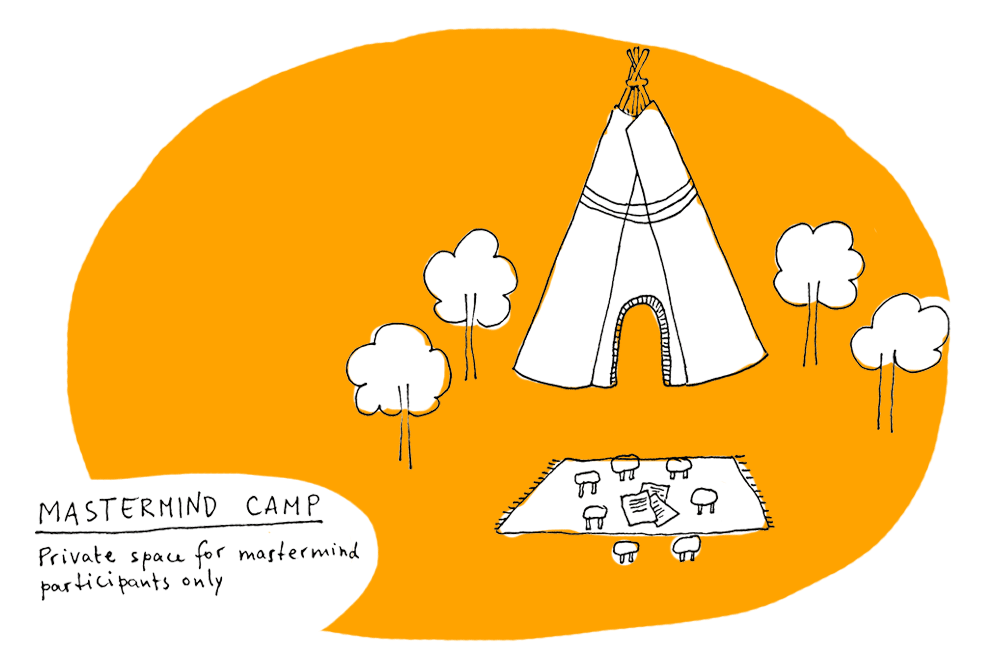 MASTERMIND CAMP
Private space for mastermind
participants only